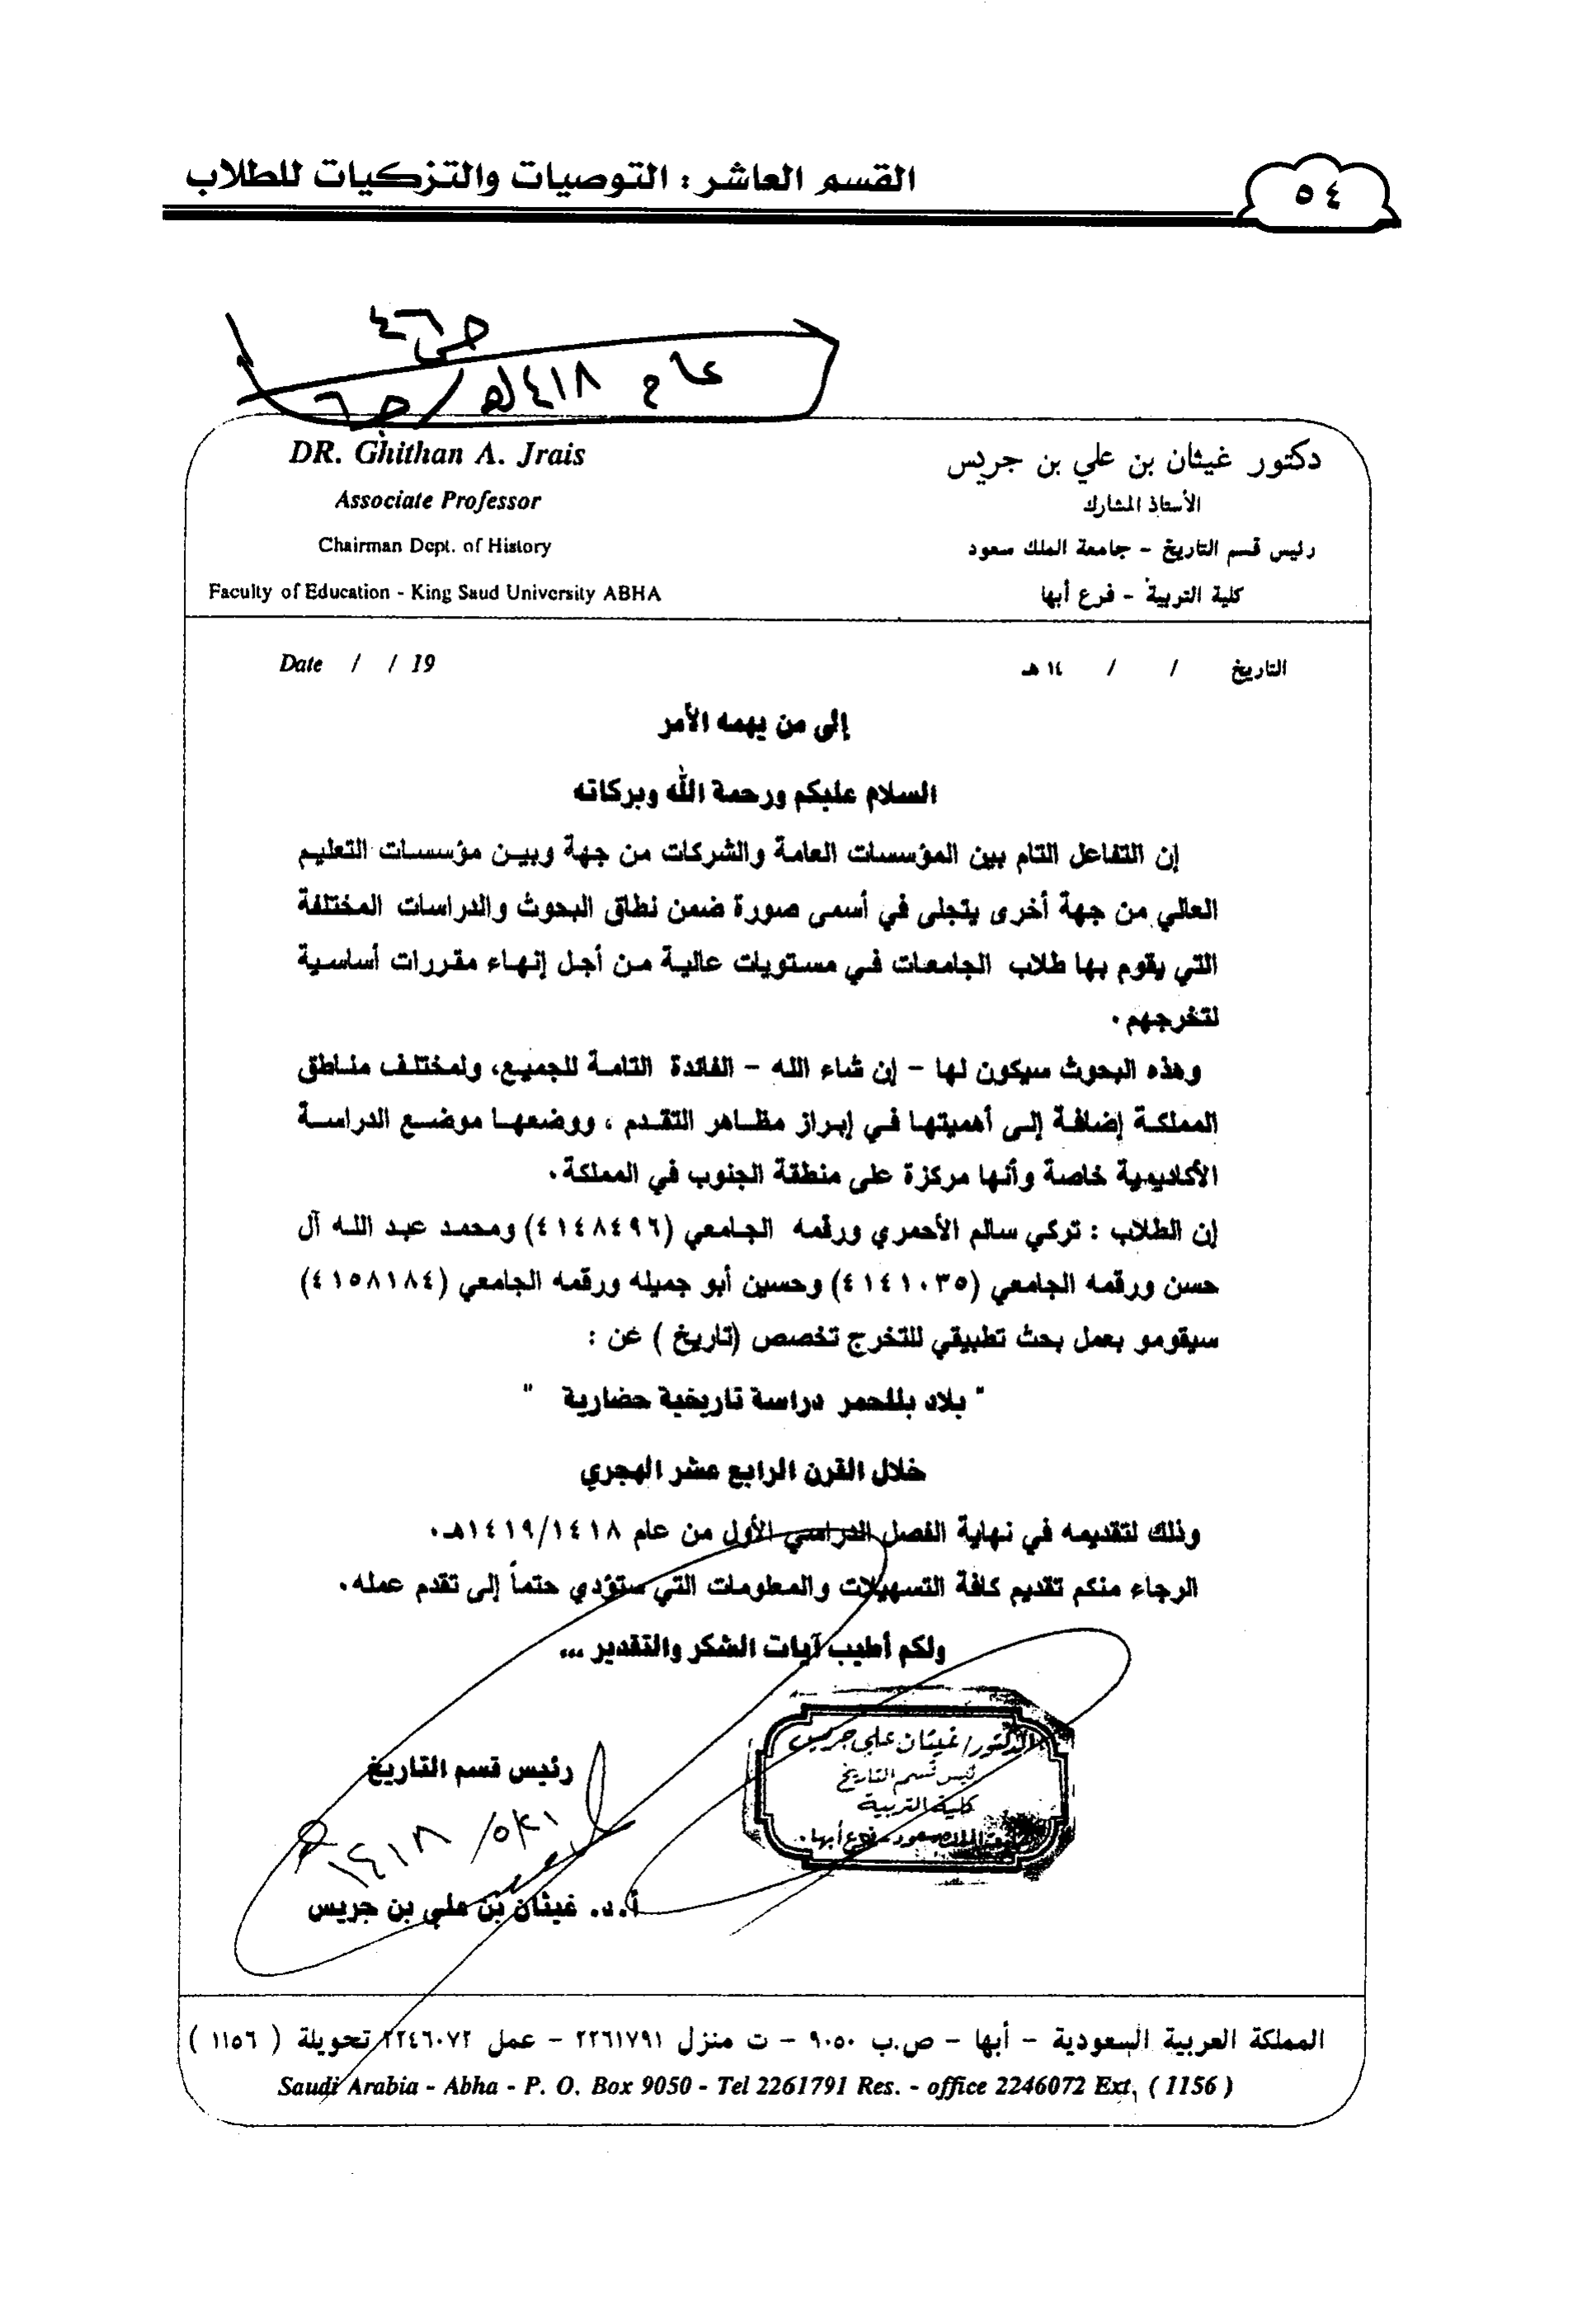 القسم العاشر : التوصيات والتزكيات للطلاب
٥٤
ص٤٦
عام ١٤١٨هـ / ص٦
DR. Ghithan A. Jrais
Associate Professor
Chairman Dept. of History
Faculty of Education - King Saud University ABHA
دكتور غيثان بن علي بن جريس
الأستاذ المشارك
رئيس قسم التاريخ - جامعة الملك سعود
كلية التربية - فرع أبها
Date / / 19
التاريخ / / ١٤ هـ
إلى من يهمه الأمر
السلام عليكم ورحمة الله وبركاته
إن التفاعل التام بين المؤسسات العامة والشركات من جهة وبين مؤسسات التعليم
العالي من جهة أخرى يتجلى في أسمى صورة ضمن نطاق البحوث والدراسات المختلفة
التي يقوم بها طلاب الجامعات في مستويات عالية من أجل إنهاء مقررات أساسية
لتخرجهم .
وهذه البحوث سيكون لها - إن شاء الله - الفائدة التامة للجميع، ولمختلف مناطق
المملكة إضافة إلى أهميتها في إبراز مظاهر التقدم ، ووضعها موضع الدراسة
الأكاديمية خاصة وأنها مركزة على منطقة الجنوب في المملكة .
إن الطلاب : تركي سالم الأحمري ورقمه الجامعي (٤١٤٨٤٩٦) ومحمد عبد الله آل
حسن ورقمه الجامعي (٤١٤١٠٣٥) وحسين أبو جميله ورقمه الجامعي (٤١٥٨١٨٤)
سيقومو بعمل بحث تطبيقي للتخرج تخصص (تاريخ ) عن :
" بلاد بللحمر دراسة تاريخية حضارية "
خلال القرن الرابع عشر الهجري
وذلك لتقديمه في نهاية الفصل الدراسي الأول من عام ١٤١٩/١٤١٨هـ .
الرجاء منكم تقديم كافة التسهيلات والمعلومات التي ستؤدي حتماً إلى تقدم عمله .
ولكم أطيب آيات الشكر والتقدير ...
الدكتور/ غيثان علي جريس
رئيس قسم التاريخ
كلية التربية
جامعة الملك سعود - فرع أبها
رئيس قسم التاريخ
أ.د. غيثان بن علي بن جريس
المملكة العربية السعودية - أبها - ص.ب ٩٠٥٠ - ت منزل ٢٢٦١٧٩١ - عمل ٢٢٤٦٠٧٢ تحويلة ( ١١٥٦ )
Saudi Arabia - Abha - P. O. Box 9050 - Tel 2261791 Res. - office 2246072 Ext, ( 1156 )